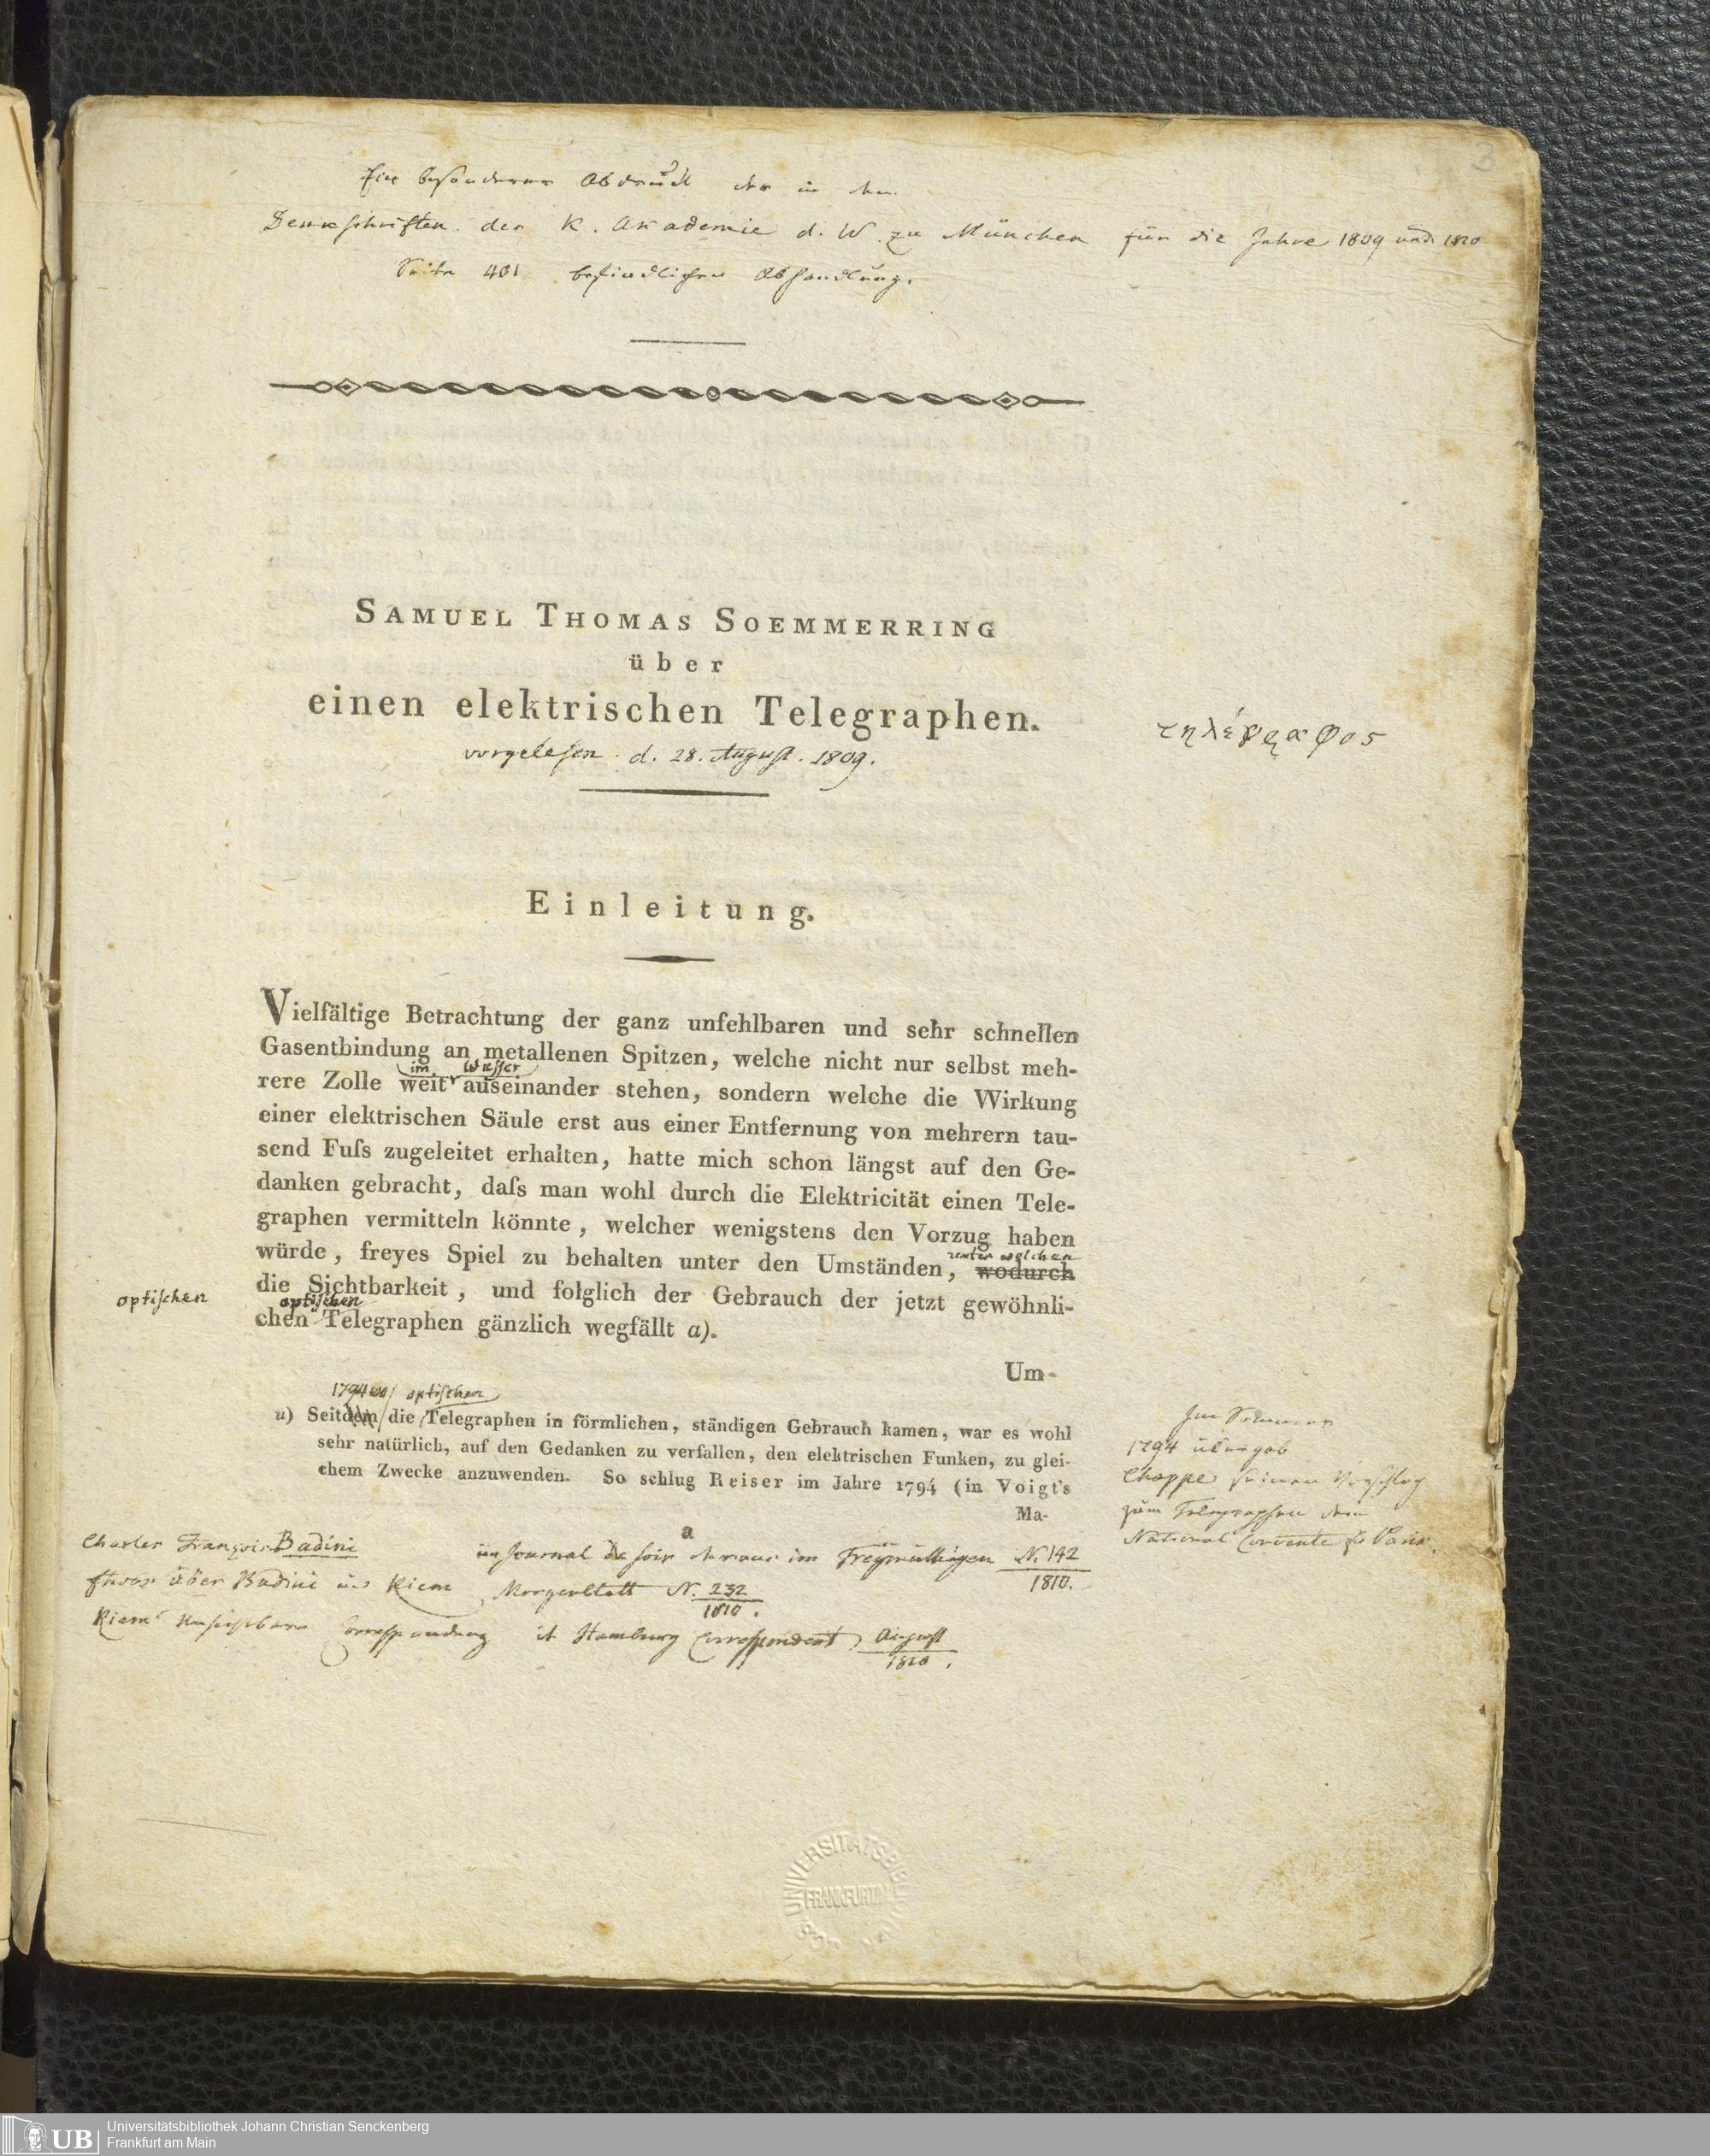 3
Ein besonderer Abdruck der in den
Denkschriften der K. Akademie d. W. zu München für die Jahre 1809 und 1810
Seite 401 befindlichen Abhandlung.
SAMUEL THOMAS SOEMMERRING
über
einen elektrischen Telegraphen.
τηλέγραφος
vorgelesen d. 28. August. 1809.
Einleitung.
Vielfältige Betrachtung der ganz unfehlbaren und sehr schnellen
Gasentbindung an metallenen Spitzen, welche nicht nur selbst meh-
im Wasser
rere Zolle weit auseinander stehen, sondern welche die Wirkung
einer elektrischen Säule erst aus einer Entfernung von mehrern tau-
send Fuſs zugeleitet erhalten, hatte mich schon längst auf den Ge-
danken gebracht, daſs man wohl durch die Elektricität einen Tele-
graphen vermitteln könnte, welcher wenigstens den Vorzug haben
unter welchen
würde, freyes Spiel zu behalten unter den Umständen, wodurch
die Sichtbarkeit, und folglich der Gebrauch der jetzt gewöhnli-
optischen
optischen
chen Telegraphen gänzlich wegfällt a).
Um-
1794 optischen
a) Seitdem die Telegraphen in förmlichen, ständigen Gebrauch kamen, war es wohl
sehr natürlich, auf den Gedanken zu verfallen, den elektrischen Funken, zu glei-
chem Zwecke anzuwenden. So schlug Reiser im Jahre 1794 (in Voigt's
Ma-
Im Sommer
1794 übergab
Chappe seinen Vorschlag
zum Telegraphen dem
National Convente zu Paris.
a
Charles François Badini im Journal de soir daraus im Freymüthigen N. 142
1810.
Etwas über Badini und Riem Morgenblatt N. 232
1810.
Riems unsichtbare Correspondenz Hamburg Correspondent August
1810.
UNIVERSITÄTSBIBL
FRANKFURT
UB
Universitätsbibliothek Johann Christian Senckenberg
Frankfurt am Main